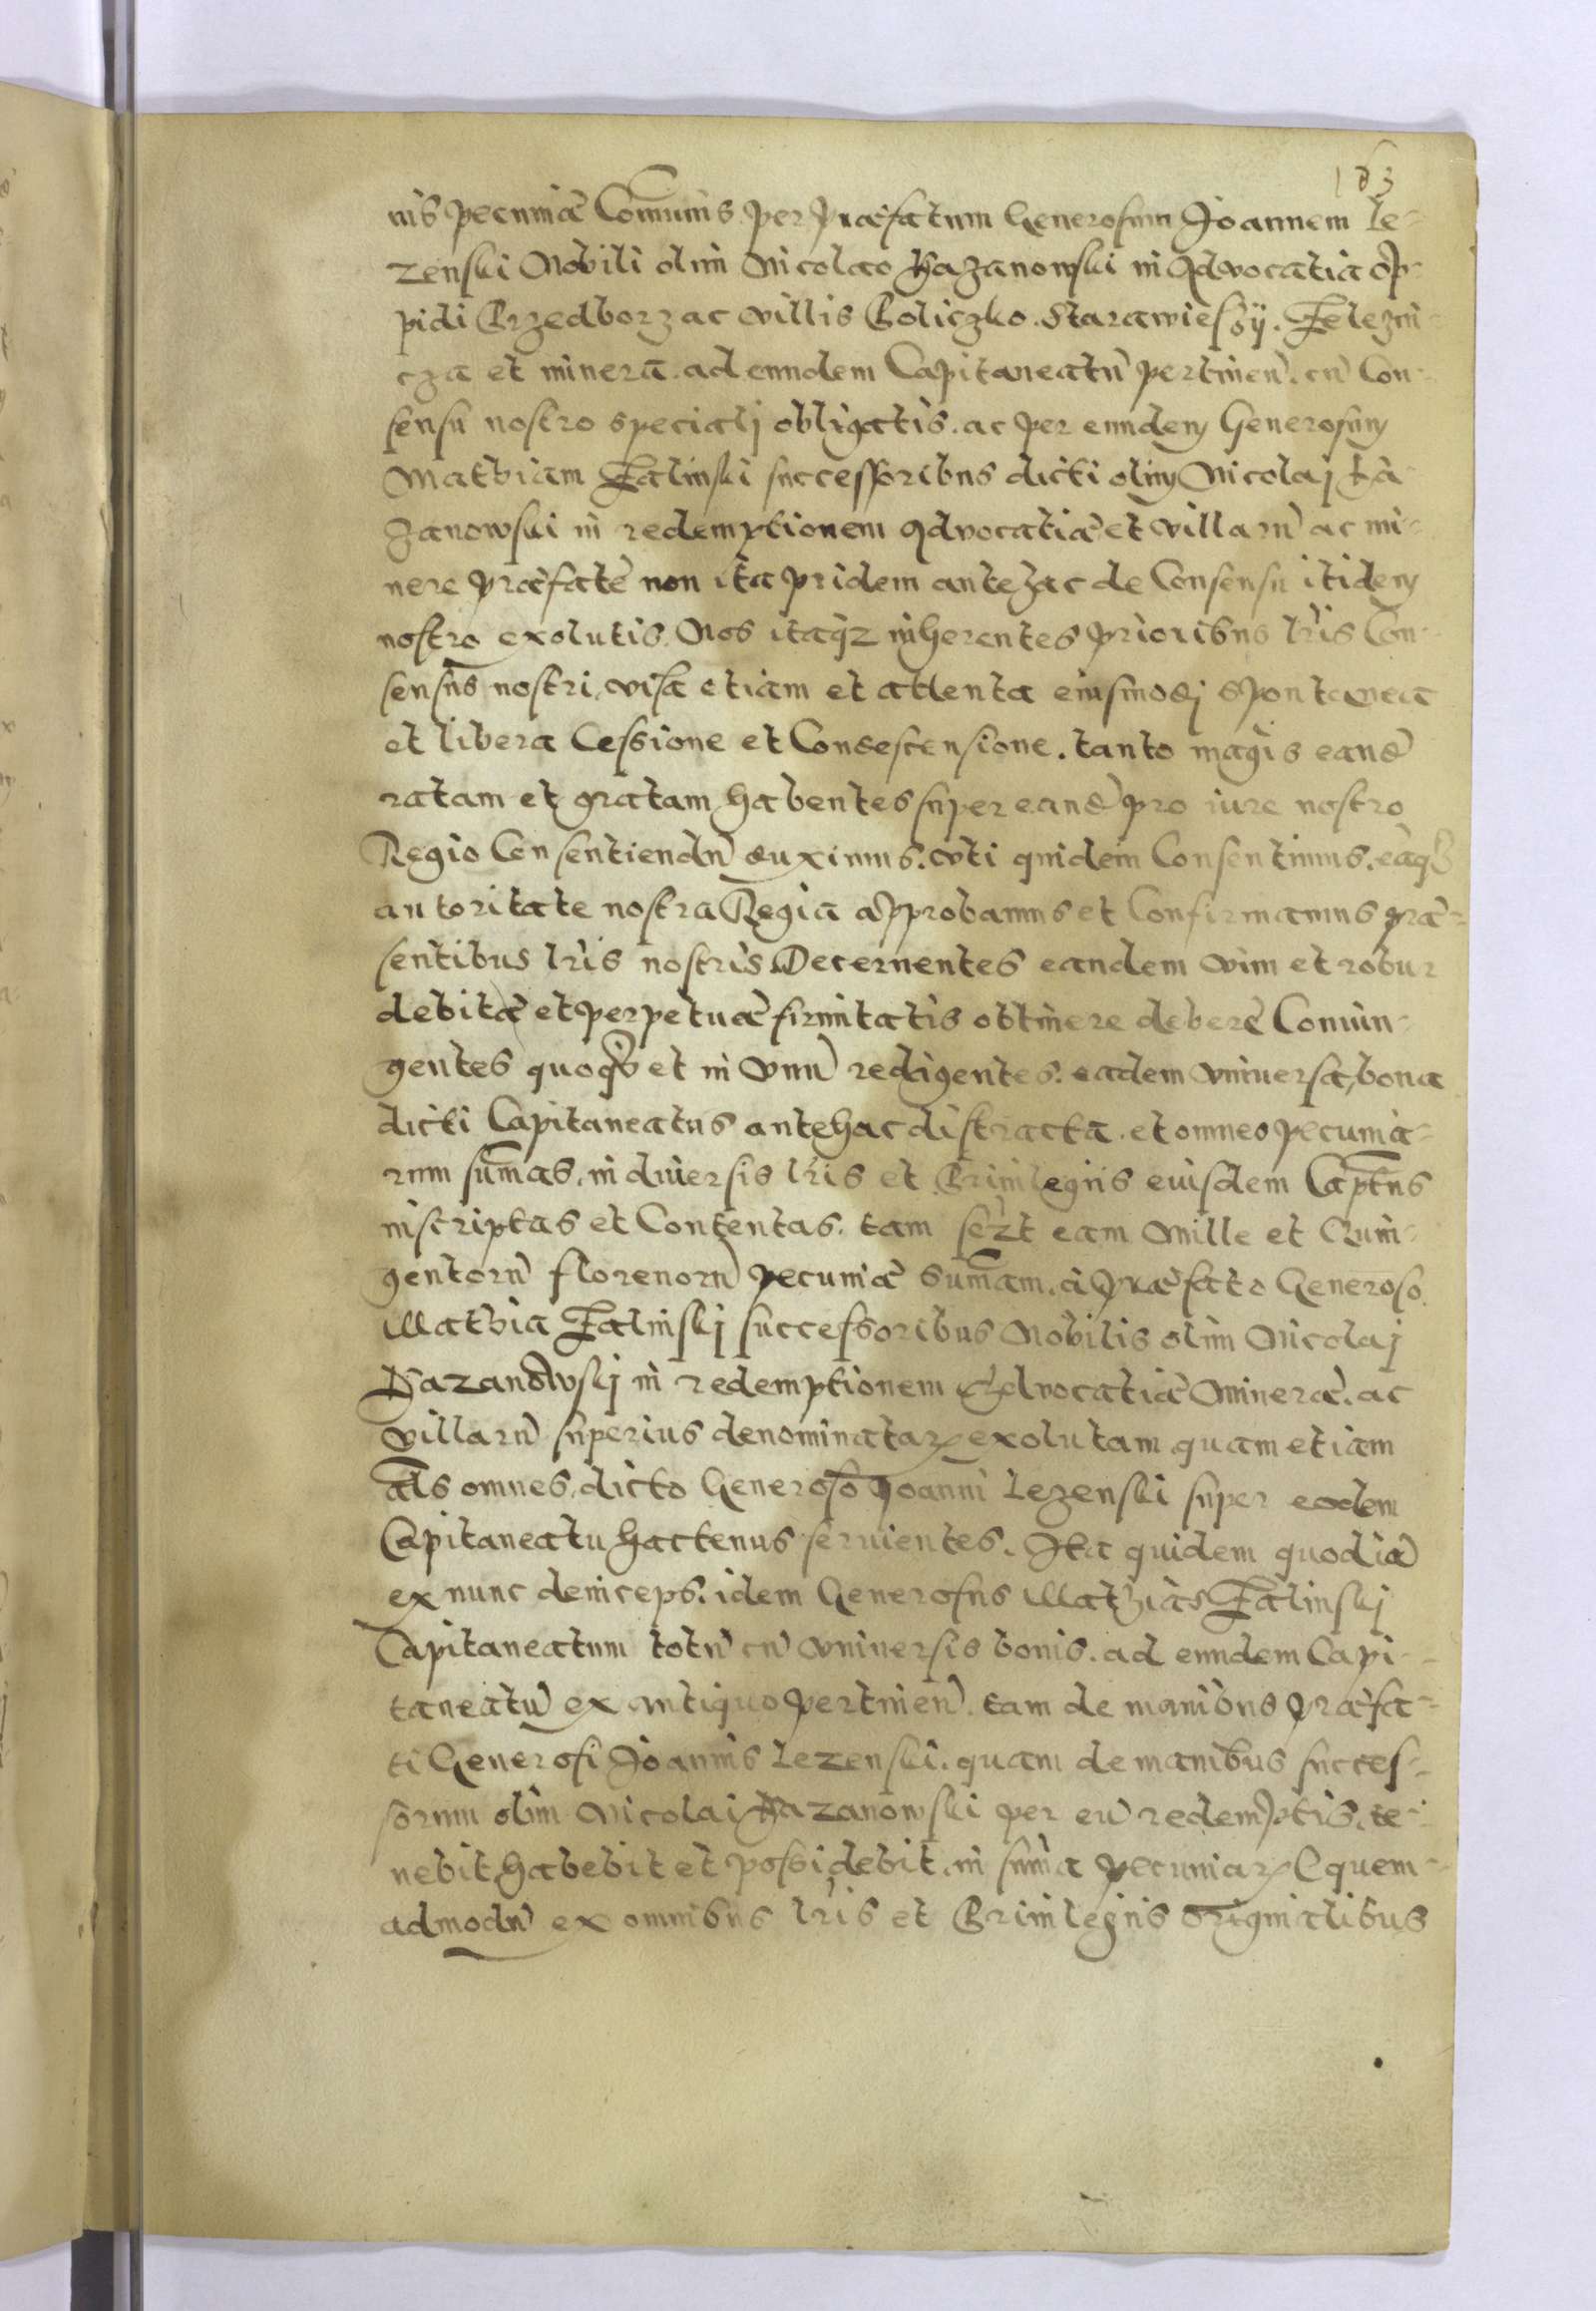 163
nis pecuniæ Com̄unis per præfatum Generosum Joannem Le-
zenski Nobili olim Nicolao Kazanowski in Advocatia op-
pidi Przedborz ac villis Policzko. Starawiessÿ. Zelezni
cza et minera. ad eundem Capitaneatũ pertineñ. cũ Con-
sensu nostro specialj obligatis. ac per eundem Generosum
Mathiam Zalinski successoribus dicti olim Nicolaj Ka-
zanowski in redemptionem Advocatiæ et villarũ ac mi-
nere præfate non ita pridem antehac de Consensu itidem
nostro exolutis. Nos itaqz inherentes prioribus lr̃is Con-
sensus nostri, visa etiam et attenta eiusmodj spontanea
et libera Cessione et Condescensione. tanto magis eand̃
ratam et gratam habentes super eand̃ pro iure nostro
Regio Consentiendũ duximus. vti quidem Consentimus. eaq3
autoritate nostra Regia approbamus et Confirmamus præ-
sentibus lr̃is nostris Decernentes eandem vim et robur
debitæ et perpetuæ firmitatis obtinere debere Coniun-
gentes quoq3 et in vnũ redigentes. eadem vniuersa, bona
dicti Capitaneatus antehac distracta. et omnes pecunia-
rum sum̄as. in diuersis lr̃is et Priuilegiis eiusdem Capt̃us
inscriptas et Contentas. tam sczt eam Mille et Quin-
gentorũ florenorũ pecuniæ Sum̄am. a præfato Generoso
Mathia Zalinskj successoribus Nobilis olim Nicolaj
Kazanowskj in redemptionem Advocatiæ Mineræ. ac
villarũ superius denominatarꝝ exolutam quam etiam
al̃s omnes, dicto Generoso Joanni Lezenski super eodem
Capitaneatu hactenus seruientes. Ita quidem quod iã
ex nunc deinceps. idem Generosus Mathias Zalinskj
Capitaneatum totũ cũ vniuersis bonis. ad eundem Capi-
taneatũ ex antiquo pertineñ. tam de manibus præfa-
ti Generosi Joannis Lezenski. quam de manibus succes-
sorum olim Nicolai Kazanowski per eũ redemptis. te-
nebit habebit et possidebit. in sum̃a pecuniarꝝ quem-
admodũ ex omnibus lr̃is et Priuilegiis originalibus